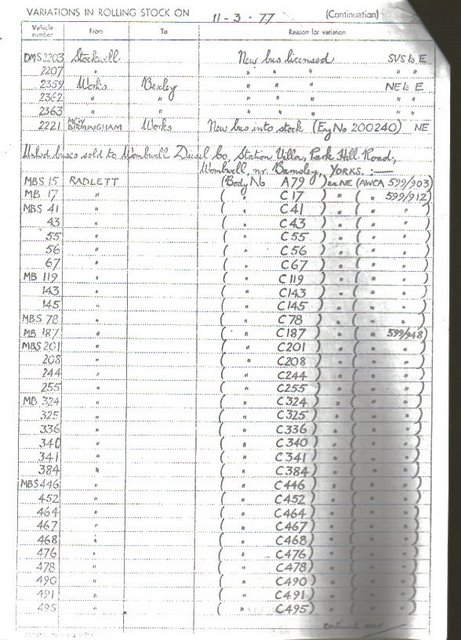 VARIATIONS IN ROLLING STOCK ON 11-3-77 (Continuation)
Vehicle number From To Reason for variation
DMS2203 Stockwell New bus licensed SVS to E
2207 " " " " " "
2359 Works Bexley " " " NE to E
2362 " " " " " " "
2363 " " " " " " "
2221 MCW BIRMINGHAM Works New bus into stock (Eng No 200240) NE
Unlic. buses sold to Wombwell Diesel Co, Station Villas, Park Hill Road,
Wombwell, nr. Barnsley, YORKS. :—
MBS 15 RADLETT (Body No A79) ex NE (AWCA 599/903)
MB 17 " ( " C17 ) " ( " 599/912)
MBS 41 " ( " C41 ) " ( " " )
43 " ( " C43 ) " ( " " )
55 " ( " C55 ) " ( " " )
56 " ( " C56 ) " ( " " )
67 " ( " C67 ) " ( " " )
MB 119 " ( " C119 ) " ( " " )
143 " ( " C143 ) " ( " " )
145 " ( " C145 ) " ( " " )
MBS 78 " ( " C78 ) " ( " " )
MB 187 " ( " C187 ) " ( " 599/948)
MBS 201 " ( " C201 ) " ( " " )
208 " ( " C208 ) " ( " " )
244 " ( " C244 ) " ( " " )
255 " ( " C255 ) " ( " " )
MB 324 " ( " C324 ) " ( " " )
325 " ( " C325 ) " ( " " )
336 " ( " C336 ) " ( " " )
340 " ( " C340 ) " ( " " )
341 " ( " C341 ) " ( " " )
384 " ( " C384 ) " ( " " )
MBS 446 " ( " C446 ) " ( " " )
452 " ( " C452 ) " ( " " )
464 " ( " C464 ) " ( " " )
467 " ( " C467 ) " ( " " )
468 " ( " C468 ) " ( " " )
476 " ( " C476 ) " ( " " )
478 " ( " C478 ) " ( " " )
490 " ( " C490 ) " ( " " )
491 " ( " C491 ) " ( " " )
495 " ( " C495 ) " ( " " )
continued over